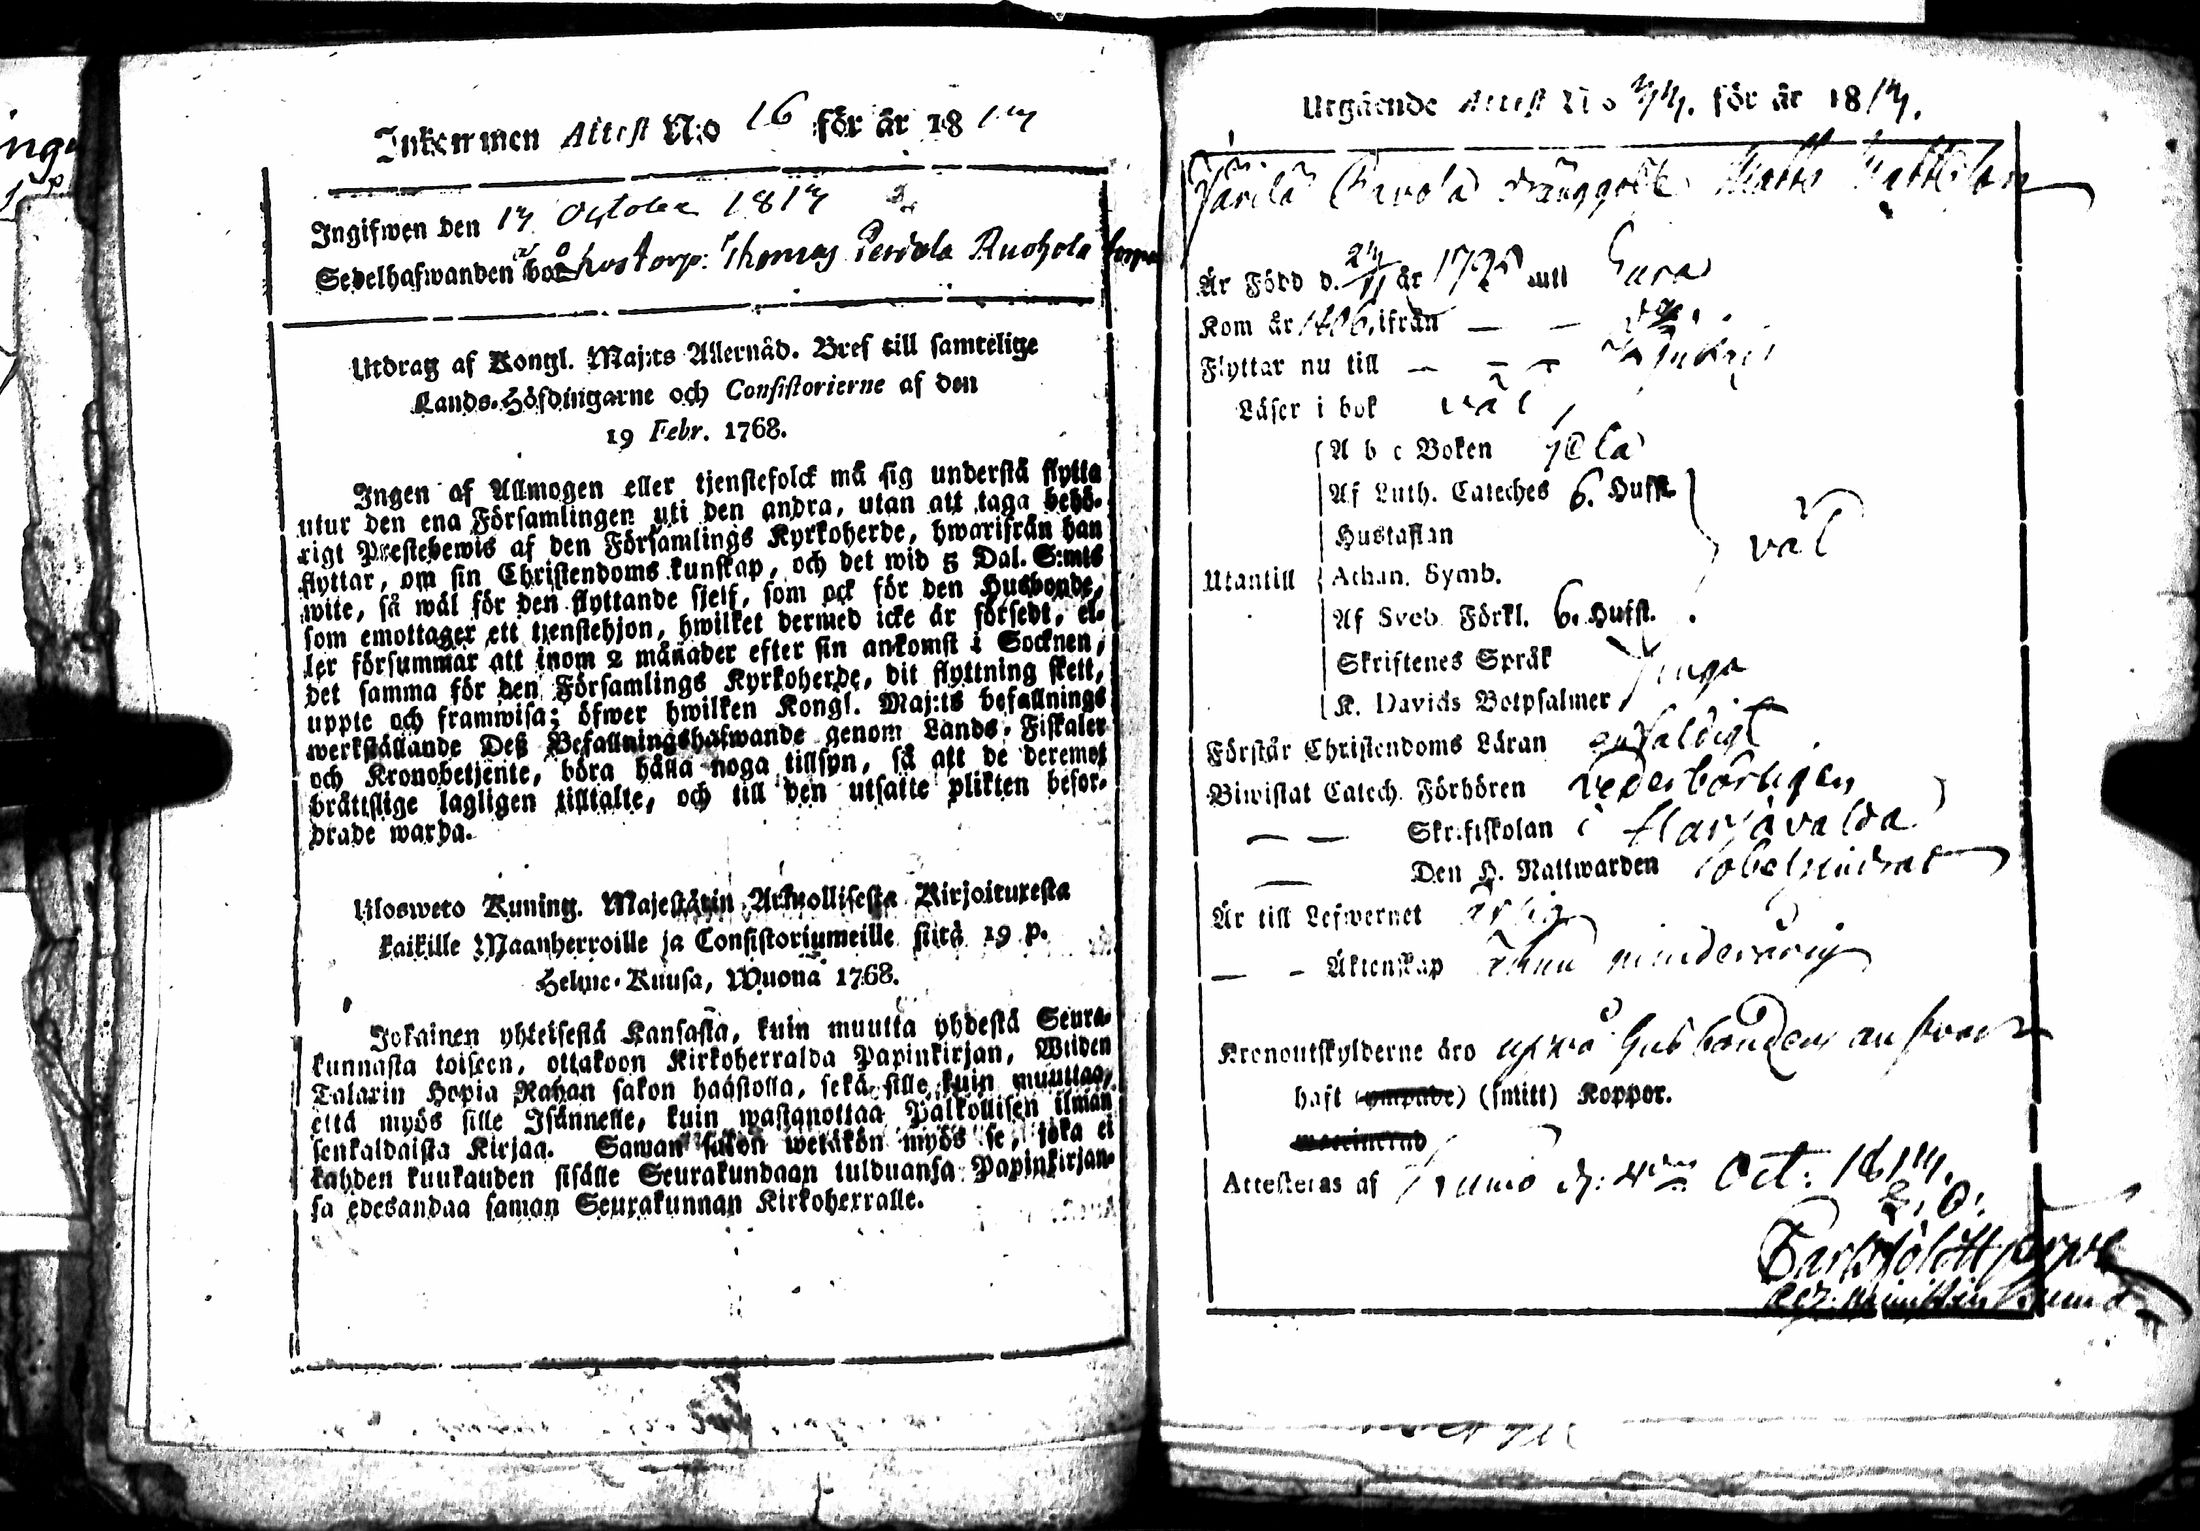 Inkommen Attest N:o 16 för år 1817
Ingifwen den 17 October 1817
Sedelhafwanden
Thomas Ruohola
Utdrag af Kongl. Maj:ts Allernåd. Bref till samtelige
Lands-Höfdingarne och Consistorierne af den
19 Febr. 1768.
Ingen af Allmogen eller tjenstefolck må sig understå flytta
utur den ena Församlingen uti den andra, utan att taga behö-
rigt Prestebewis af den Församlings Kyrkoherde, hwarifrån han
flyttar, om sin Christendoms kunskap, och det wid 5 Dal. S:mts
wite, så wäl för den flyttande sjelf, som ock för den Husbonde,
som emottager ett tjenstehjon, hwilket dermed icke är försedt, el-
ler försummar att inom 2 månader efter sin ankomst i Socknen,
det samma för den Församlings Kyrkoherde, dit flyttning skett,
uppte och framwisa; öfwer hwilken Kongl. Maj:ts befallnings
werkställande Deß Befallningshafwande genom Lands-Fiskaler
och Kronobetjente, böra hålla noga tillsyn, så att de deremot
bråttslige lagligen tilltalte, och till den utsatte plikten befor-
drade warda.
Ulosweto Kuning. Majestätin Armollisesta Kirjoituxesta
kaikille Maanherroille ja Consistoriumeille siitä 19 p.
Helme-Kuusa, Wuona 1768.
Jokainen yhteisestä Kansasta, kuin muutta yhdestä Seura-
kunnasta toiseen, ottakoon Kirkoherralda Papinkirjan, Wiiden
Talarin Hopia Rahan sakon haastolla, sekä sille kuin muuttaa,
että myös sille Isännelle, kuin wastanottaa Palkollisen ilman
senkaldaista Kirjaa. Saman sakon wetäkön myös se, joka ei
kahden kuukauden sisälle Seurakundaan tulduansa Papinkirjan-
sa edesandaa saman Seurakunnan Kirkoherralle.
Utgående Attest N:o för år 1817.
dränggoße Matts Mattsson
Är Född d. 24/11 år uti Eura
Kom år 1806 ifrån — —
Flyttar nu till — — —
Läser i bok väl
A b c Boken hela
Af Luth. Cateches 6. Hufst.
Hustaflan
väl
Utantill Athan. Symb.
Af Sveb. Förkl. 6. Hufst.
Skriftenes Språk
inga
K. Davids Botpsalmer
Förstår Christendoms Läran enfaldigt
Biwistat Catech. Förhören vederbörligen
— — Skriftskolan i Harjavalda
— Den H. Nattwarden obehindrat
Är till Lefwernet ärlig
— - Äktenskap ännu minderårig
Kronoutskylderne äro uppå Husbondens answar
haft (ympade) (smitt) Koppor.
Attesteras af Kiumo d: 4de Oct: 1817.